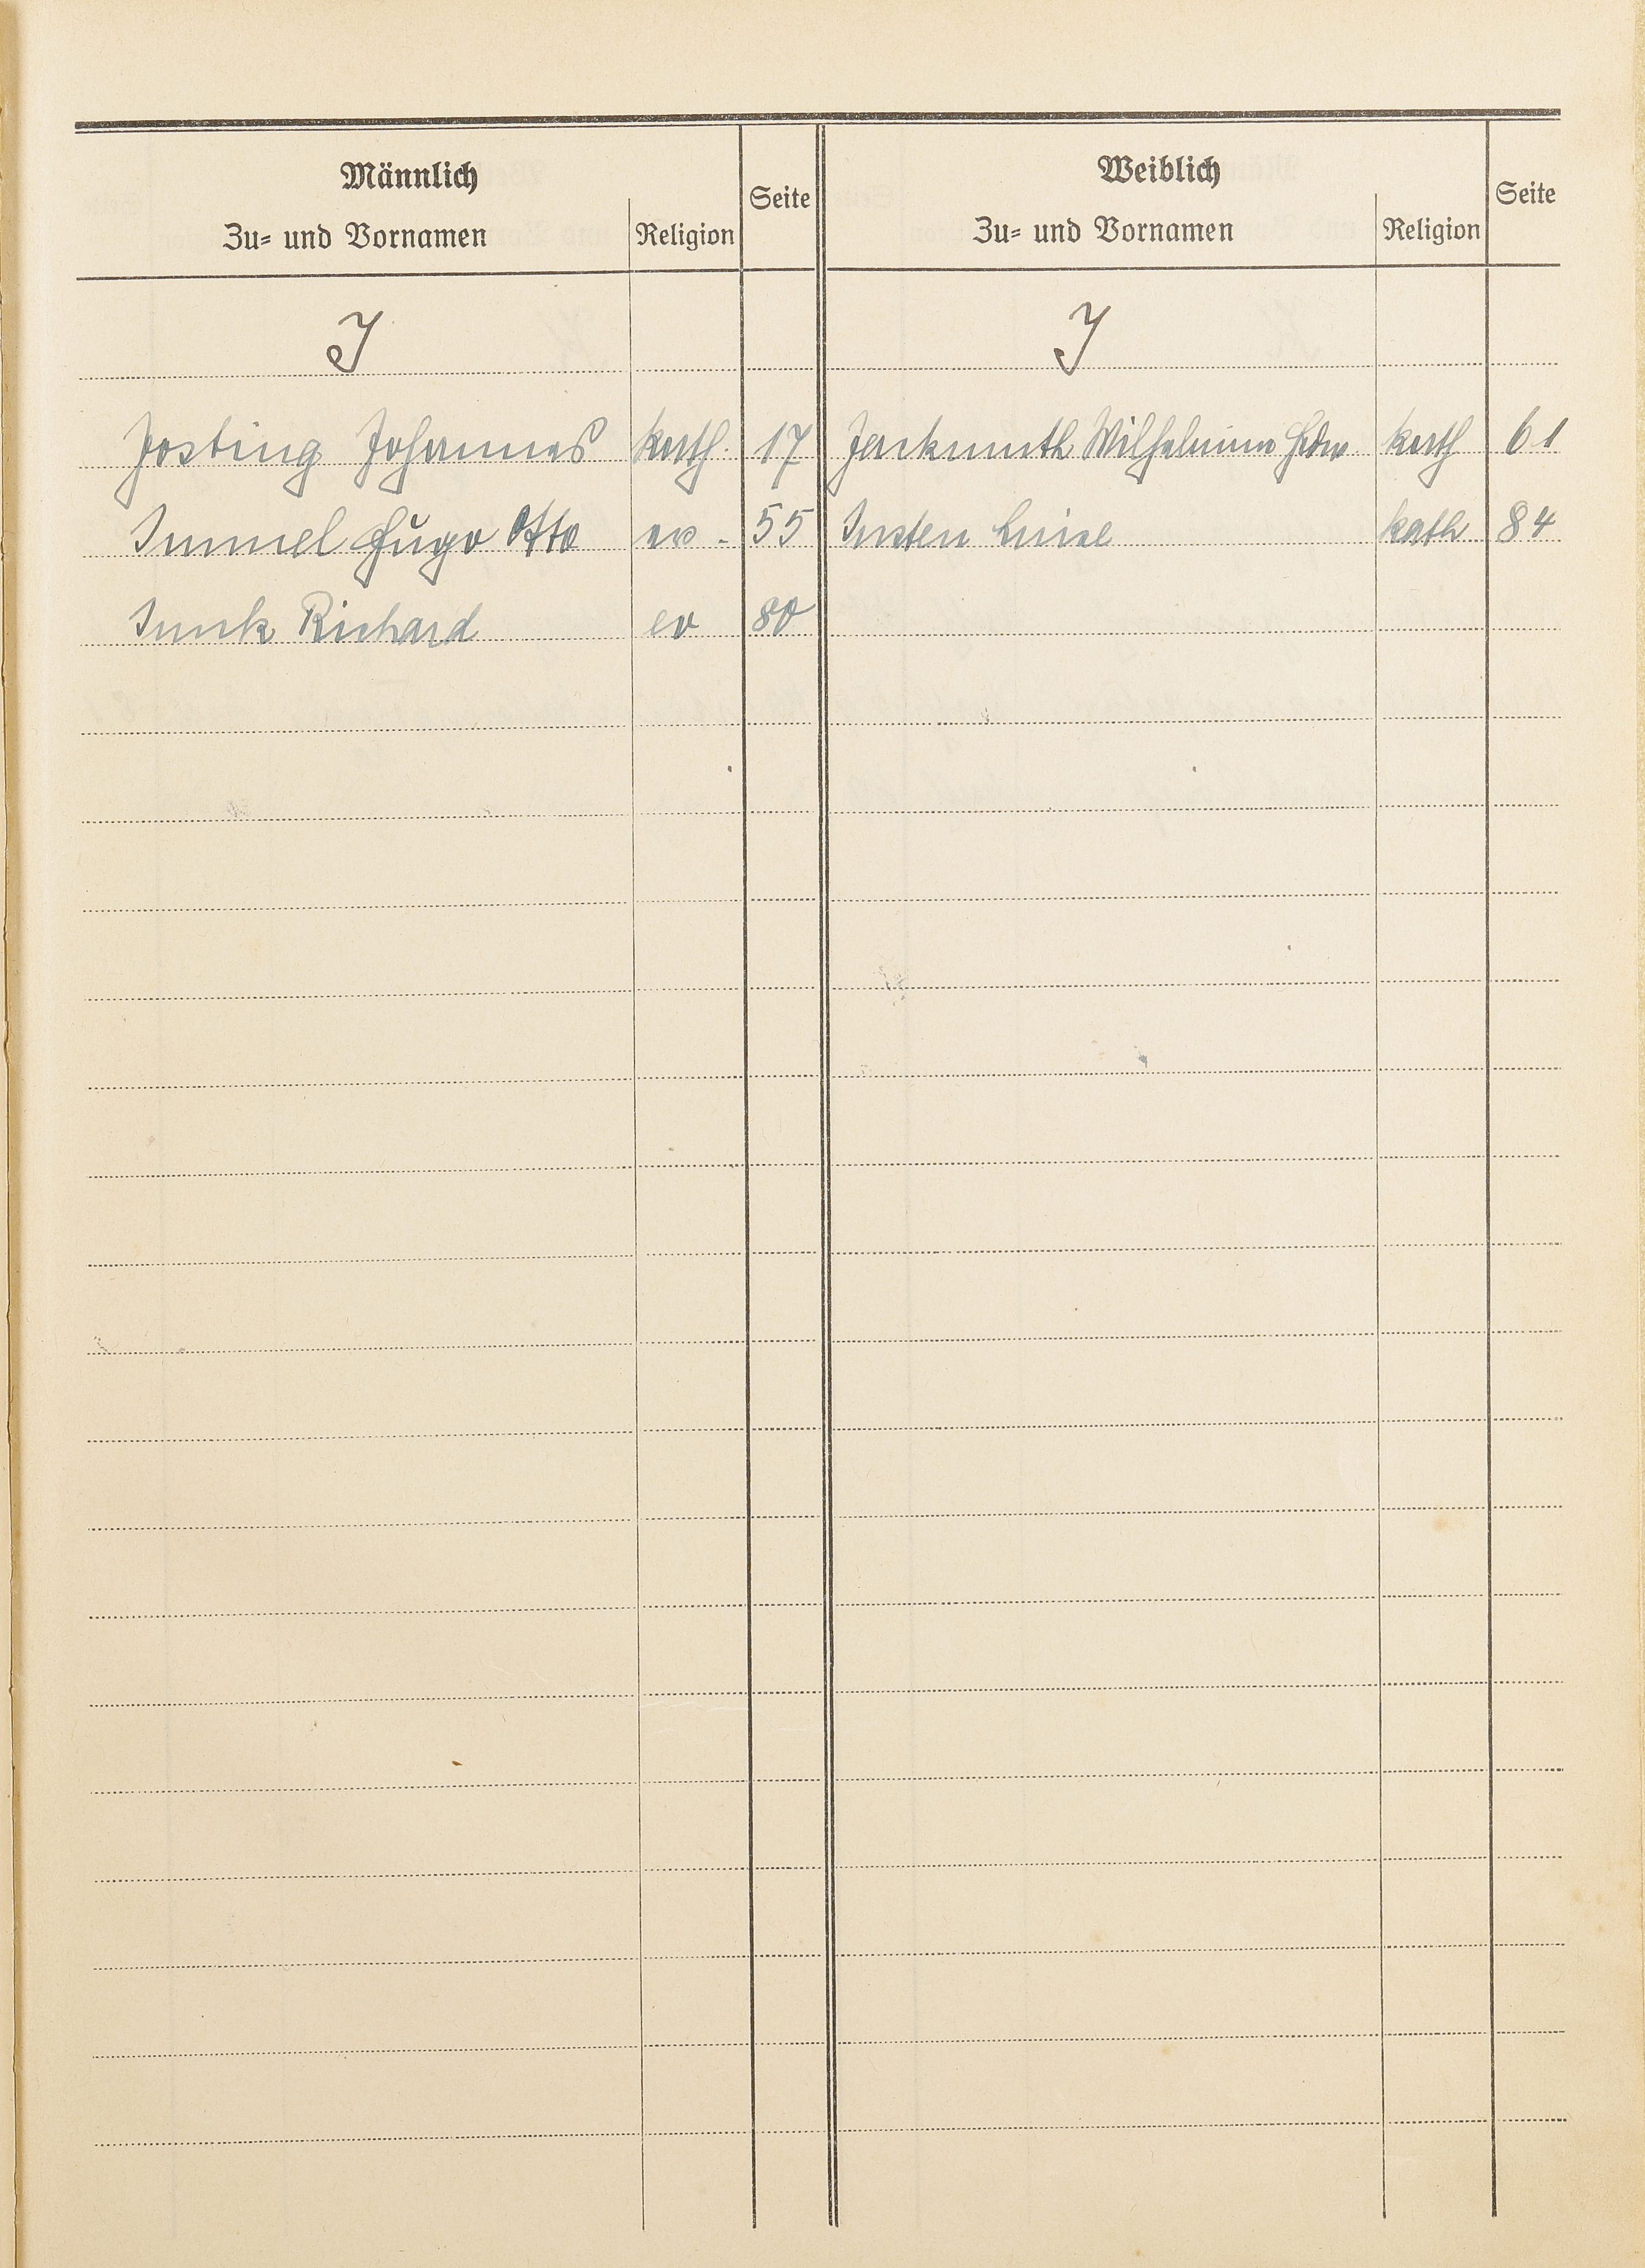 Männlich
Zu- und Vornamen
Religion
Seite
Weiblich
Zu- und Vornamen
Religion
Seite
J
J
Josting Johannes kath. 17
Immel Hugo Otto ev. 55
Junk Richard ev 80
Wilhelmine Hedw kath 61
Luise kath 84